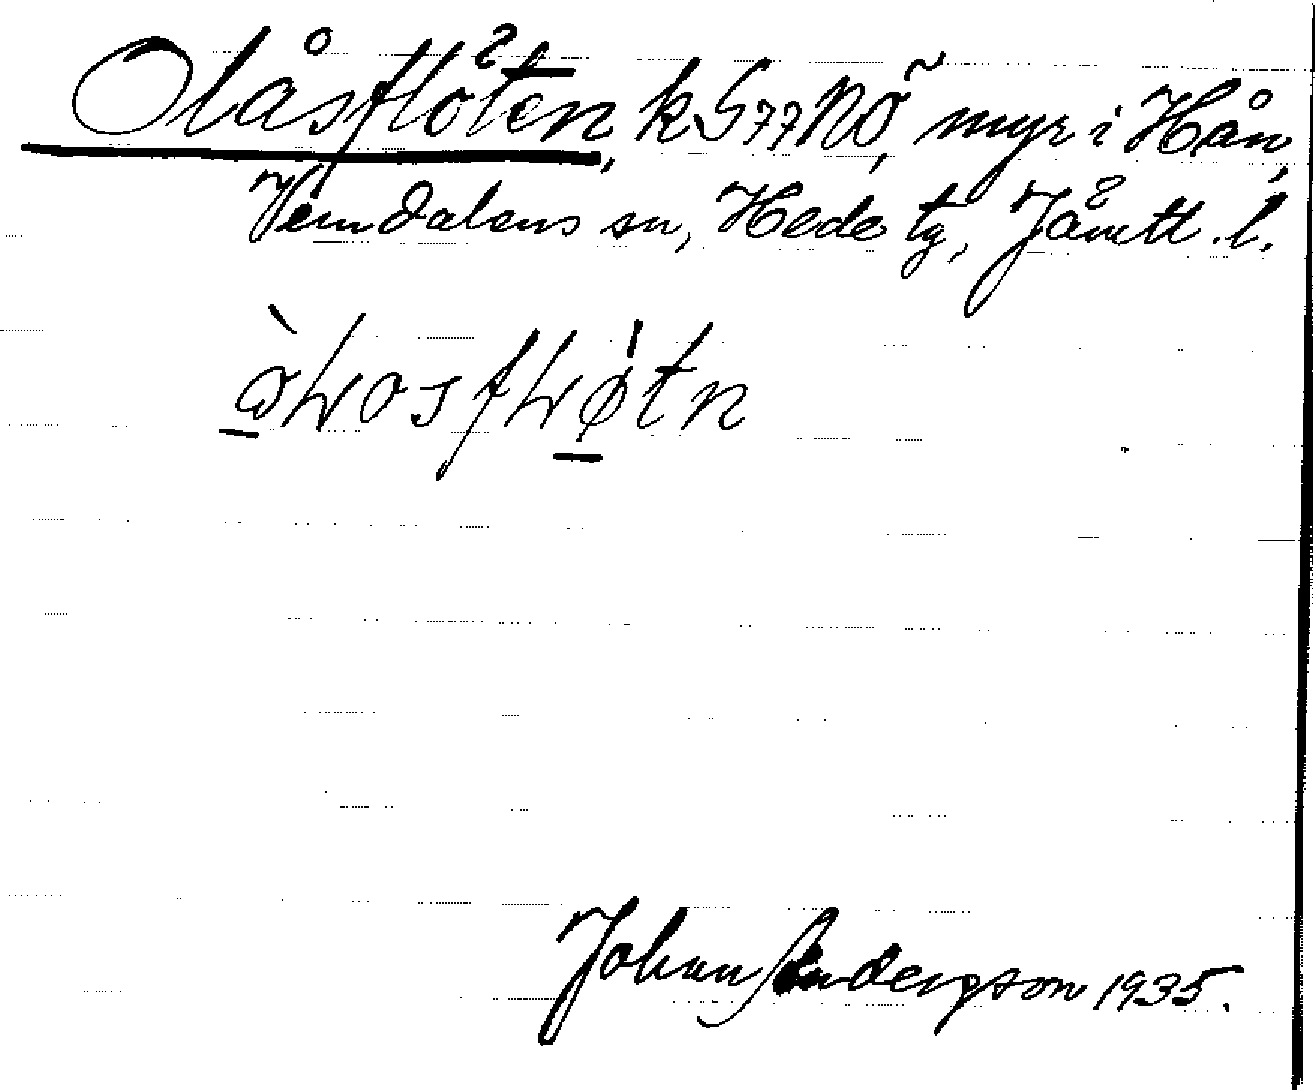 Olåsflöten, k S 77 NÖ, myr i Hån,
Vemdalens sn, Hede tg, Jämtl. l.
Johan Andersson 1935.